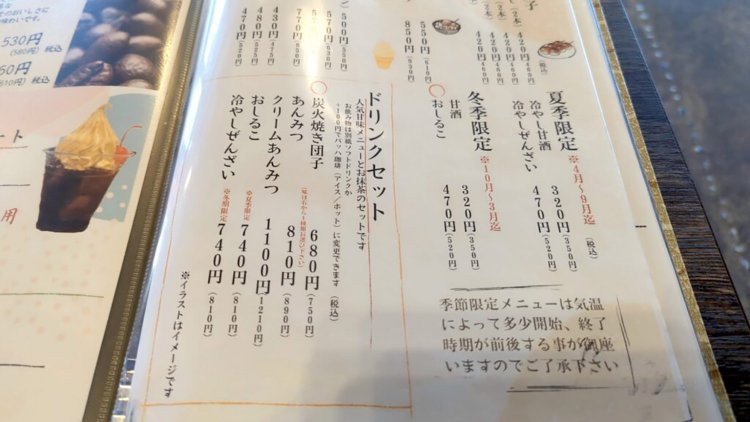 夏季限定
※4月～9月迄
(税込)
冷やし甘酒
320円(350円)
冷やしぜんざい
470円(520円)
冬季限定
※10月～3月迄
甘酒
320円(350円)
おしるこ
470円(520円)
季節限定メニューは気温
によって多少開始、終了
時期が前後する事が御座
いますのでご了承下さい
ドリンクセット
人気甘味メニューとお抹茶のセットです
お飲み物は別紙ソフトドリンクか
+100円でバッハ珈琲(アイス/ホット)に変更できます
(税込)
炭火焼き団子
680円(750円)
あんみつ
810円(890円)
クリームあんみつ
1100円(1210円)
おしるこ
※冬期限定
740円(810円)
冷やしぜんざい
※夏季限定
740円(810円)
※イラストはイメージです
530円
(580円)税込
(510円)税込
ート
用
550円(610円)
850円
500円
430円(475円)
480円(525円)
470円(520円)
770円
420円
420円
420円
(税込)